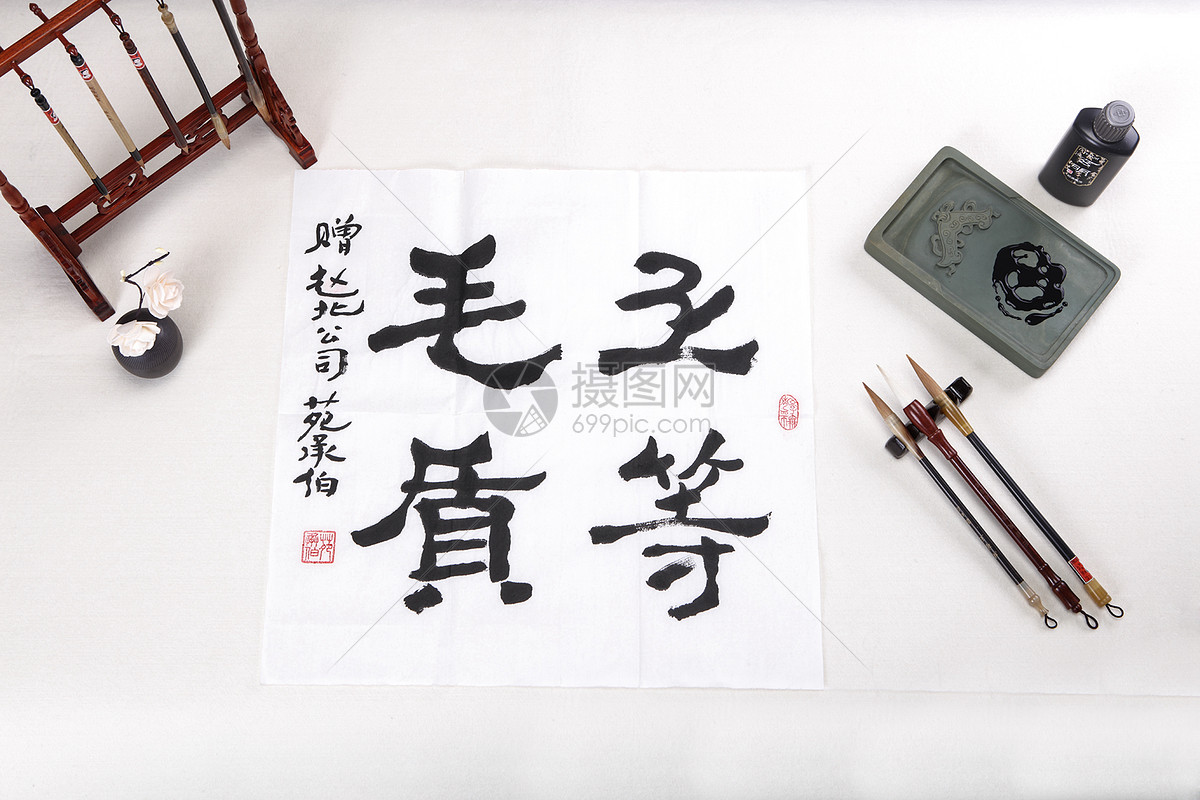 等
毛質
赠赵北公司 苑承伯
苑承伯
摄图网
699pic.com